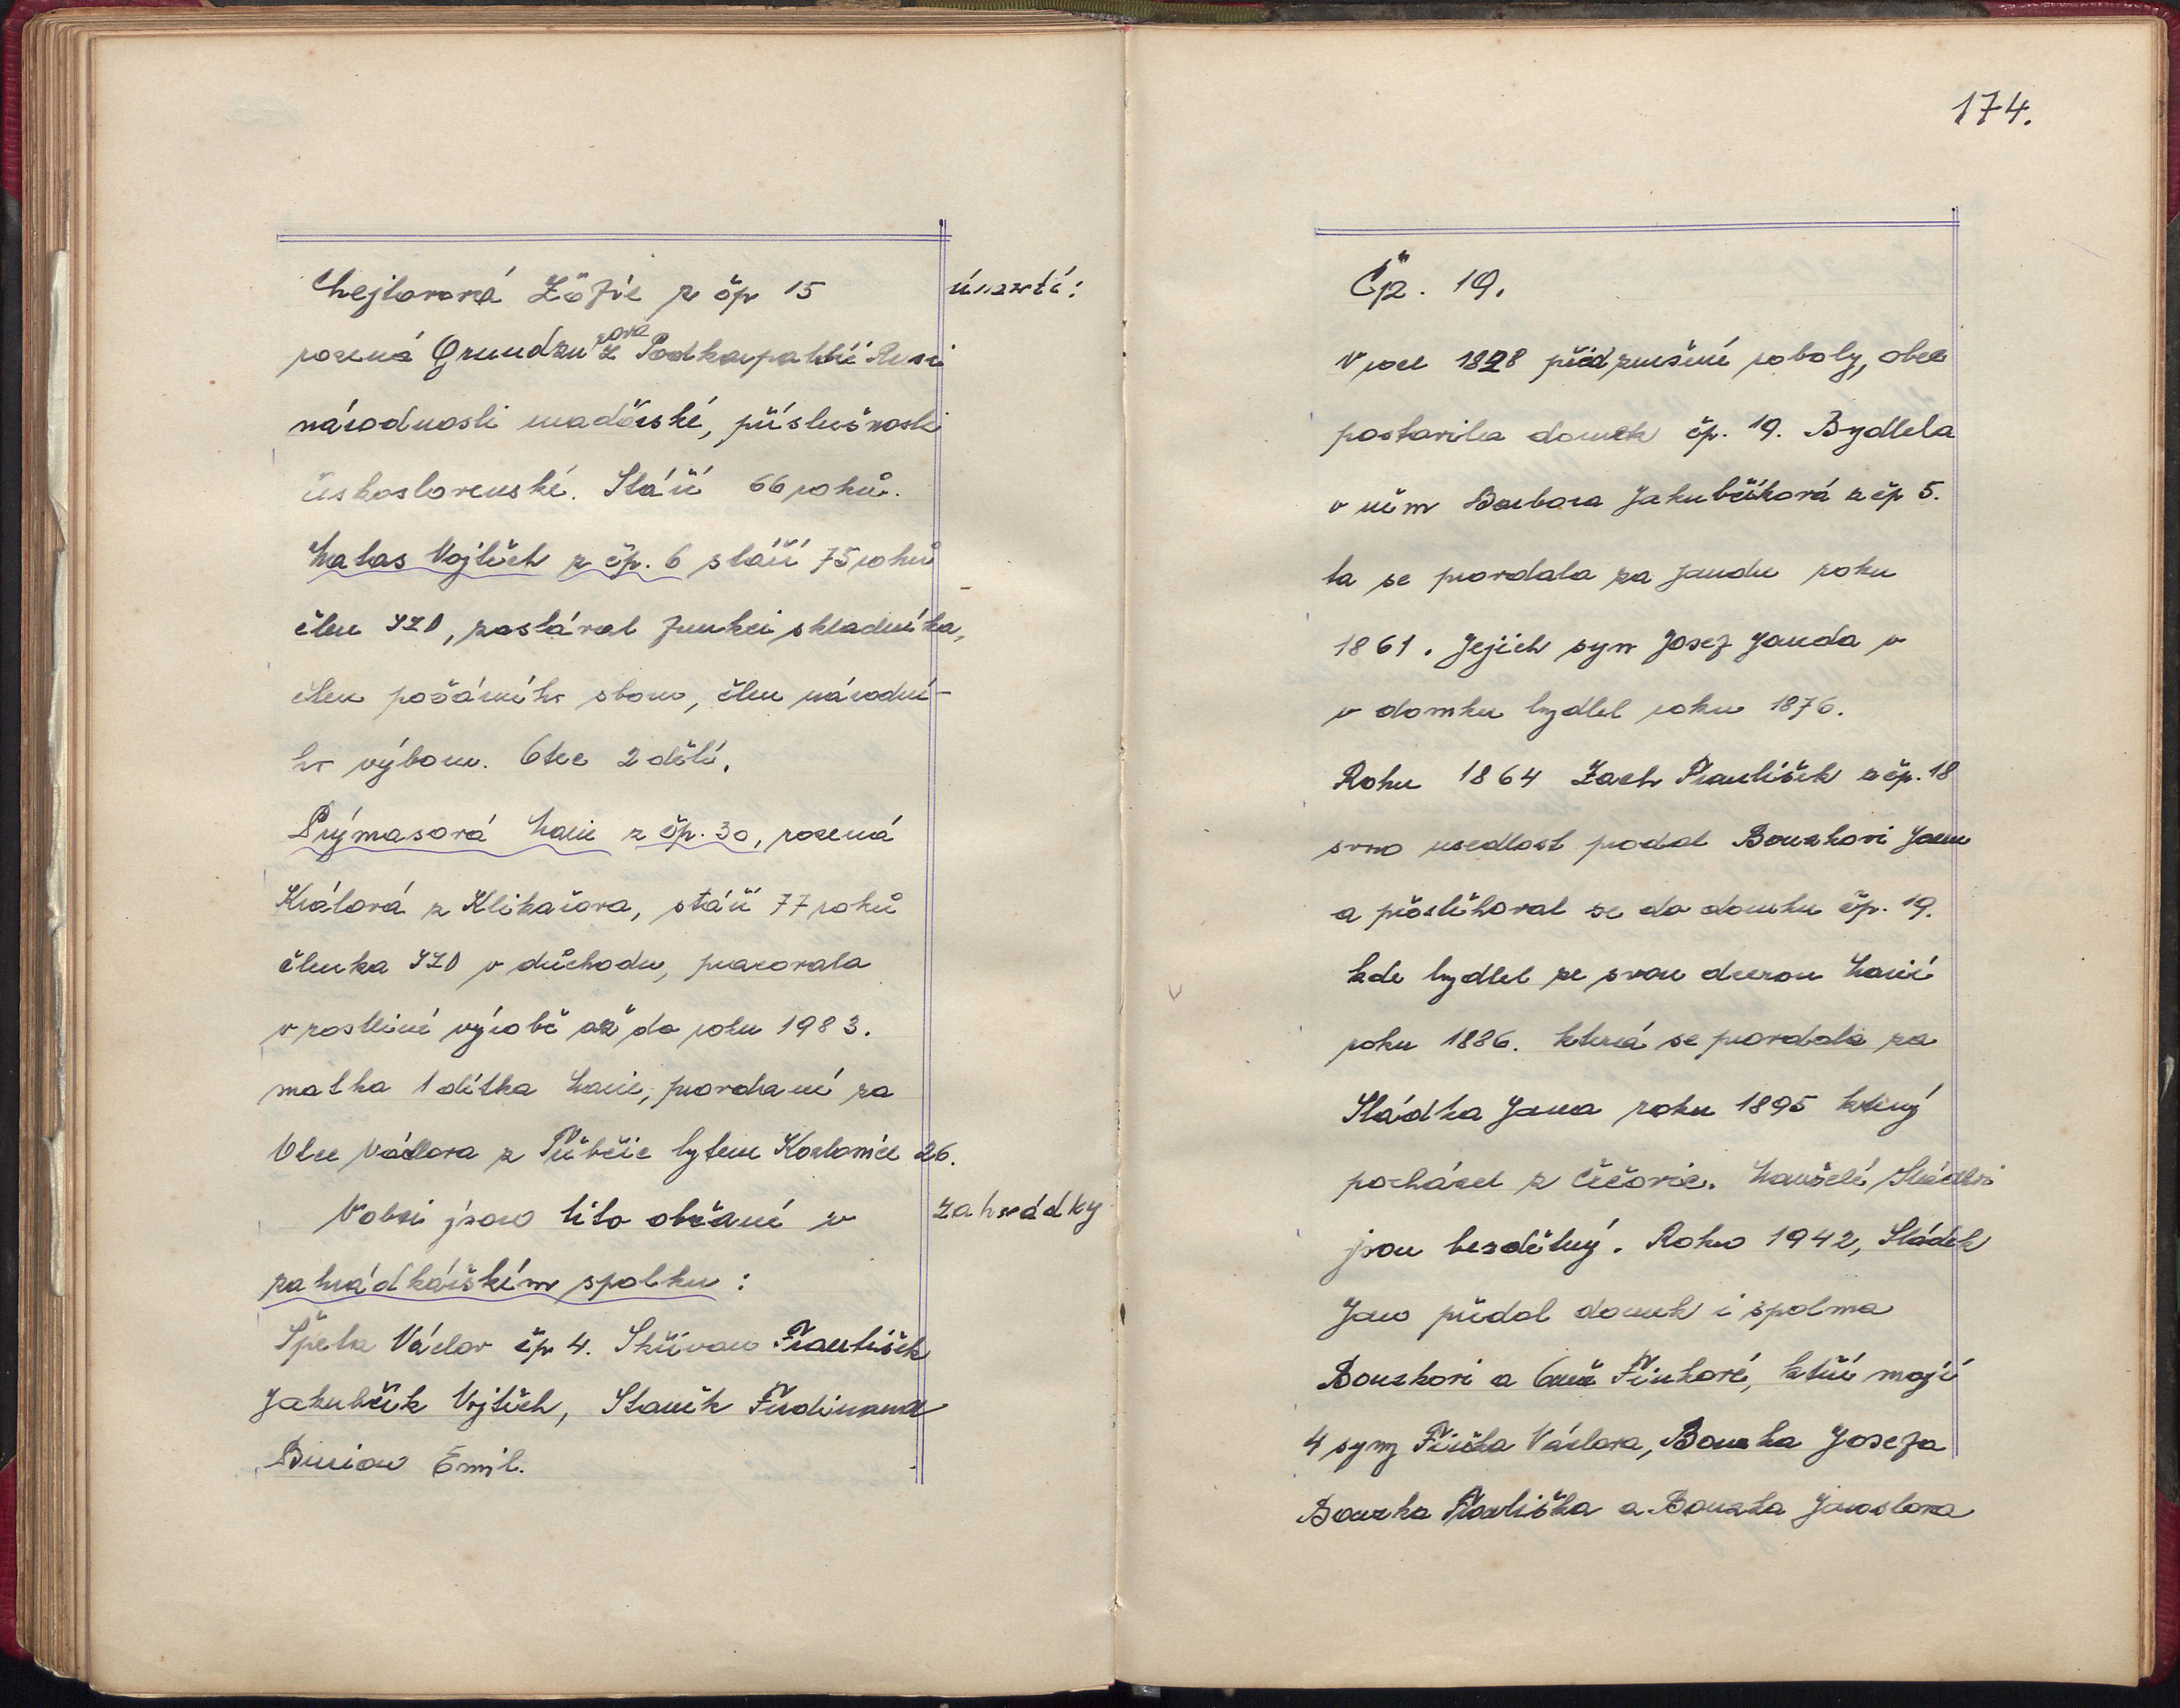 Chejlavová Žofie z čp 15
úmrtí:
rozená Grundzu z Podkarpatské Rusi
národnosti maďarské, příslušnosti
československé. Stáří 66 roků.
Matas Vojtěch z čp. 6 stáří 75 roků
člen JZD, zastával funkci skladníka,
člen požárního sboru, člen národní-
ho výboru. Otec 2 dětí.
Prýmasová Marie z čp. 30, rozená
Králová z Klikařova, stáří 77 roků
členka JZD v důchodu, pracovala
v rostliné výrobě až do roku 1983.
matka 1 dítka Marie, provdaní za
Vlce Václava z Příbčic bytem Koslovice 26.
V obci jsou tito občané v
zahrádky
zahrádkářském spolku:
Špeta Václav čp 4. Skřivan František
Jakubčík Vojtěch, Staněk Ferdinand
Burian Emil.
174.
Čp. 19.
V roce 1828 před zrušení roboty, obec
postavila domek čp. 19. Bydlela
v něm Barbora Jakubčíková z čp 5.
ta se provdala za Jandu roku
1861. Jejich syn Josef Janda v
v domku bydlel roku 1876.
Roku 1864 Zach František z čp. 18
svno usedlost prodal Bouzkovi Janu
a přestěhoval se do domku čp. 19.
kde bydlel ze svou dcerou Marií
roku 1886. která se provdala za
Sládka Jana roku 1895 který
pocházel z Čečovic. Manželé Sládkovi
jsou bezdětný. Roku 1942, Sládek
Jan předal domek i spolma
Bouzkovi a Anně Finkové, kteří mají
4 syny Václava, Bouzka Josefa
Bouzka Františka a Bouzka Jaroslava